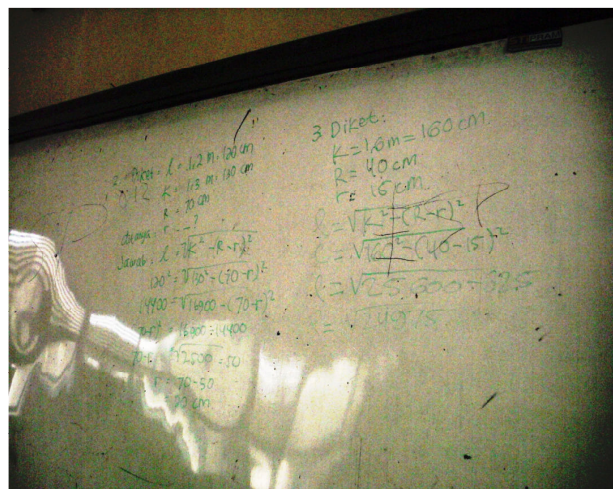 2. Diket = l = 1,2 m = 120 cm
K = 1,3 m = 130 cm
R = 70 cm
r = ...?
Jawab: l = √K² - (R - r)²
120² = √130² - (70 - r)²
14400 = √16900 - (70 - r)²
= 16900 - 14400
70-r = √2500 = 50
r = 70 - 50
= 20 cm
3 Diket:
K = 1,6 m = 160 cm
R = 40 cm
r = 15 cm
l = √K² - (R-r)²
l = √160² - (40-15)²
l = √25600 - 625
= √